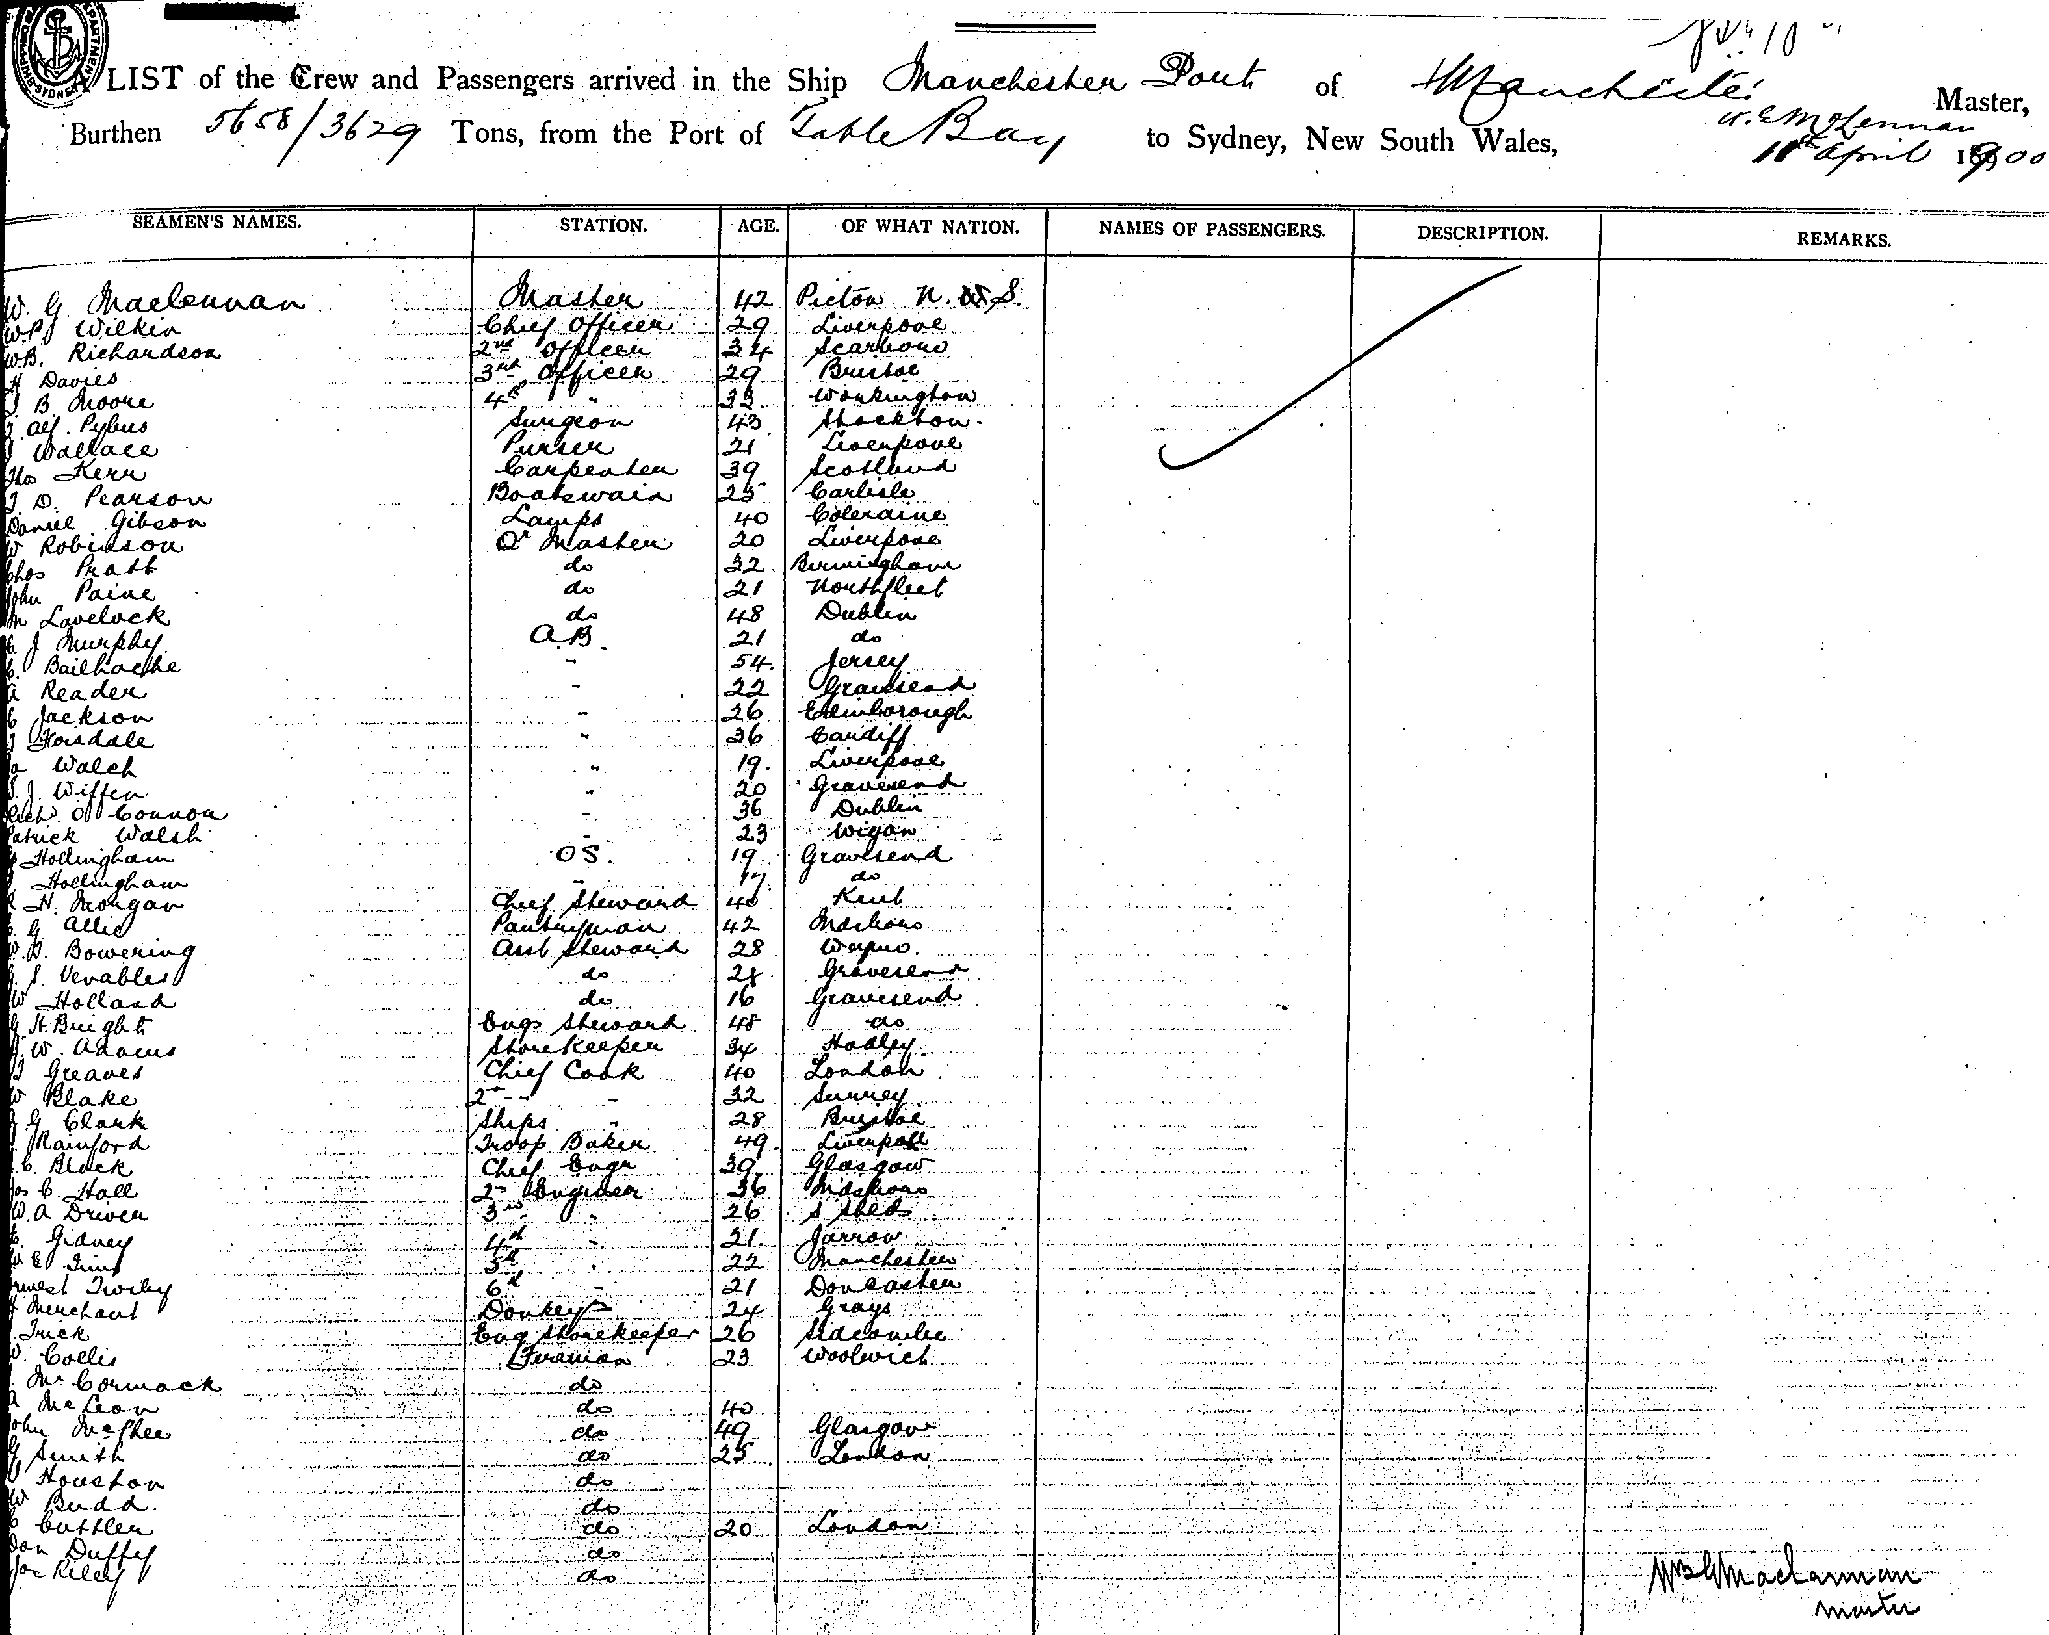 A LIST of the Crew and Passengers arrived in the Ship Manchester Port of Manchester
Master,
W. G. McLennan
Burthen 5658/3629 Tons, from the Port of Table Bay to Sydney, New South Wales, April 1900
SEAMEN'S NAMES. STATION. AGE. OF WHAT NATION. NAMES OF PASSENGERS. DESCRIPTION. REMARKS.
W. G Maclennan Master 42 Picton N. S.
W.P.J Wilkin Chief Officer 29 Liverpool
W.B. Richardson 2nd Officer 34 Scarboro
H Davies 3rd Officer 29 Bristol
J B Moore 4th " 33 Workington
Alf. Pybus Surgeon 43 Stockton.
J Wallace Purser 21 Liverpool
Thos Kerr Carpenter 39 Scotland
J D. Pearson Boatswain 25 Carlisle
Daniel Gibson Lamps 40 Coleraine
W Robinson Qr Master 20 Liverpool
Chas Pratt do 32 Birmingham
John Paine do 21 Northfleet
M Lovelock do 48 Dublin
J Murphy A.B. 21 do
C. Bailhache " 54. Jersey
A Reader " 22 Gravesend
C Jackson " 26 Edinborough
J Horsdale " 36 Cardiff
Walch " 19. Liverpool
J. Wiffen " 20 Gravesend
Richd O'Connor " 36 Dublin
Patrick Walsh " 23 Wigan
Hollingham OS. 19 Gravesend
Hollingham " 17 do
H. Morgan Chief Steward 40 Kent
G Allis Pantryman 42
W.D. Bowering Asst Steward 28
J. Venables do 24 Gravesend
W Holland do 16 Gravesend
G H. Bright Engs Steward 48 do
J W Adams Storekeeper 34 Hadley
J Greaves Chief Cook 40 London
W Blake 2nd " 32 Surrey
G Clark Ships " 28 Bristol
J Rainford Troop Baker 49 Liverpool
C. Black Chief Engr 39 Glasgow
Jas C. Hall 2nd Engineer 36
W.A Driver 3rd " 26 S Shlds
C. Gidney 4th " 21. Jarrow
W E Tims 5th " 22 Manchester
Ernest Twiby 6th " 21 Doncaster
H Merchant Donkey 24 Grays
Trick Eng Storekeeper 26
W. Collis Fireman 23 Woolwich
McCormack do
A McLeon do 40
John McPhee do 49 Glasgow
G Smith do 25 London
J Houston do
W Budd. do
C Cuttler do 20 London
Dan Duffy do
Joe Riley do
Wm G Maclennan
Master